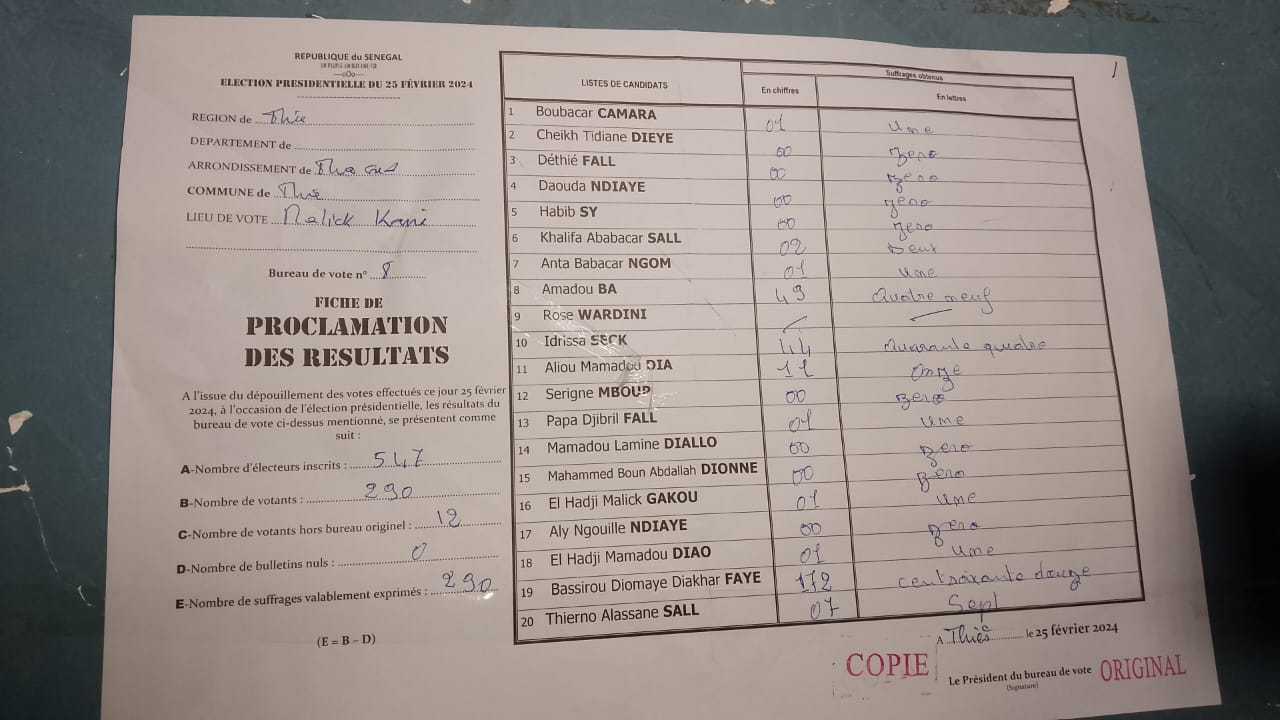 REPUBLIQUE du SENEGAL
UN PEUPLE-UN BUT-UNE FOI
---oOo---
ELECTION PRESIDENTIELLE DU 25 FÉVRIER 2024
REGION de Thiè
DEPARTEMENT de
ARRONDISSEMENT de
COMMUNE de Thiè
LIEU DE VOTE Malick Kani
Bureau de vote n° 8
FICHE DE
PROCLAMATION
DES RESULTATS
A l'issue du dépouillement des votes effectués ce jour 25 février
2024, à l'occasion de l'élection présidentielle, les résultats du
bureau de vote ci-dessus mentionné, se présentent comme
suit :
A-Nombre d'électeurs inscrits : 547
B-Nombre de votants : 290
C-Nombre de votants hors bureau originel : 12
D-Nombre de bulletins nuls : 0
E-Nombre de suffrages valablement exprimés : 290
(E = B – D)
LISTES DE CANDIDATS
Suffrages obtenus
En chiffres En lettres
1 Boubacar CAMARA 01 une
2 Cheikh Tidiane DIEYE 00 zero
3 Déthié FALL 00 zero
4 Daouda NDIAYE 00 zero
5 Habib SY 00 zero
6 Khalifa Ababacar SALL 02 Deux
7 Anta Babacar NGOM 01 une
8 Amadou BA 49 Quatre neuf
9 Rose WARDINI
10 Idrissa SECK 44 Quarante quatre
11 Aliou Mamadou DIA 11 onze
12 Serigne MBOUP 00 zero
13 Papa Djibril FALL 01 une
14 Mamadou Lamine DIALLO 00 zero
15 Mahammed Boun Abdallah DIONNE 00 zero
16 El Hadji Malick GAKOU 01 une
17 Aly Ngouille NDIAYE 00 zero
18 El Hadji Mamadou DIAO 01 une
19 Bassirou Diomaye Diakhar FAYE 172 centsoixante douze
20 Thierno Alassane SALL 07 Sept
A Thiès le 25 février 2024
Le Président du bureau de vote
(Signature)
COPIE
ORIGINAL